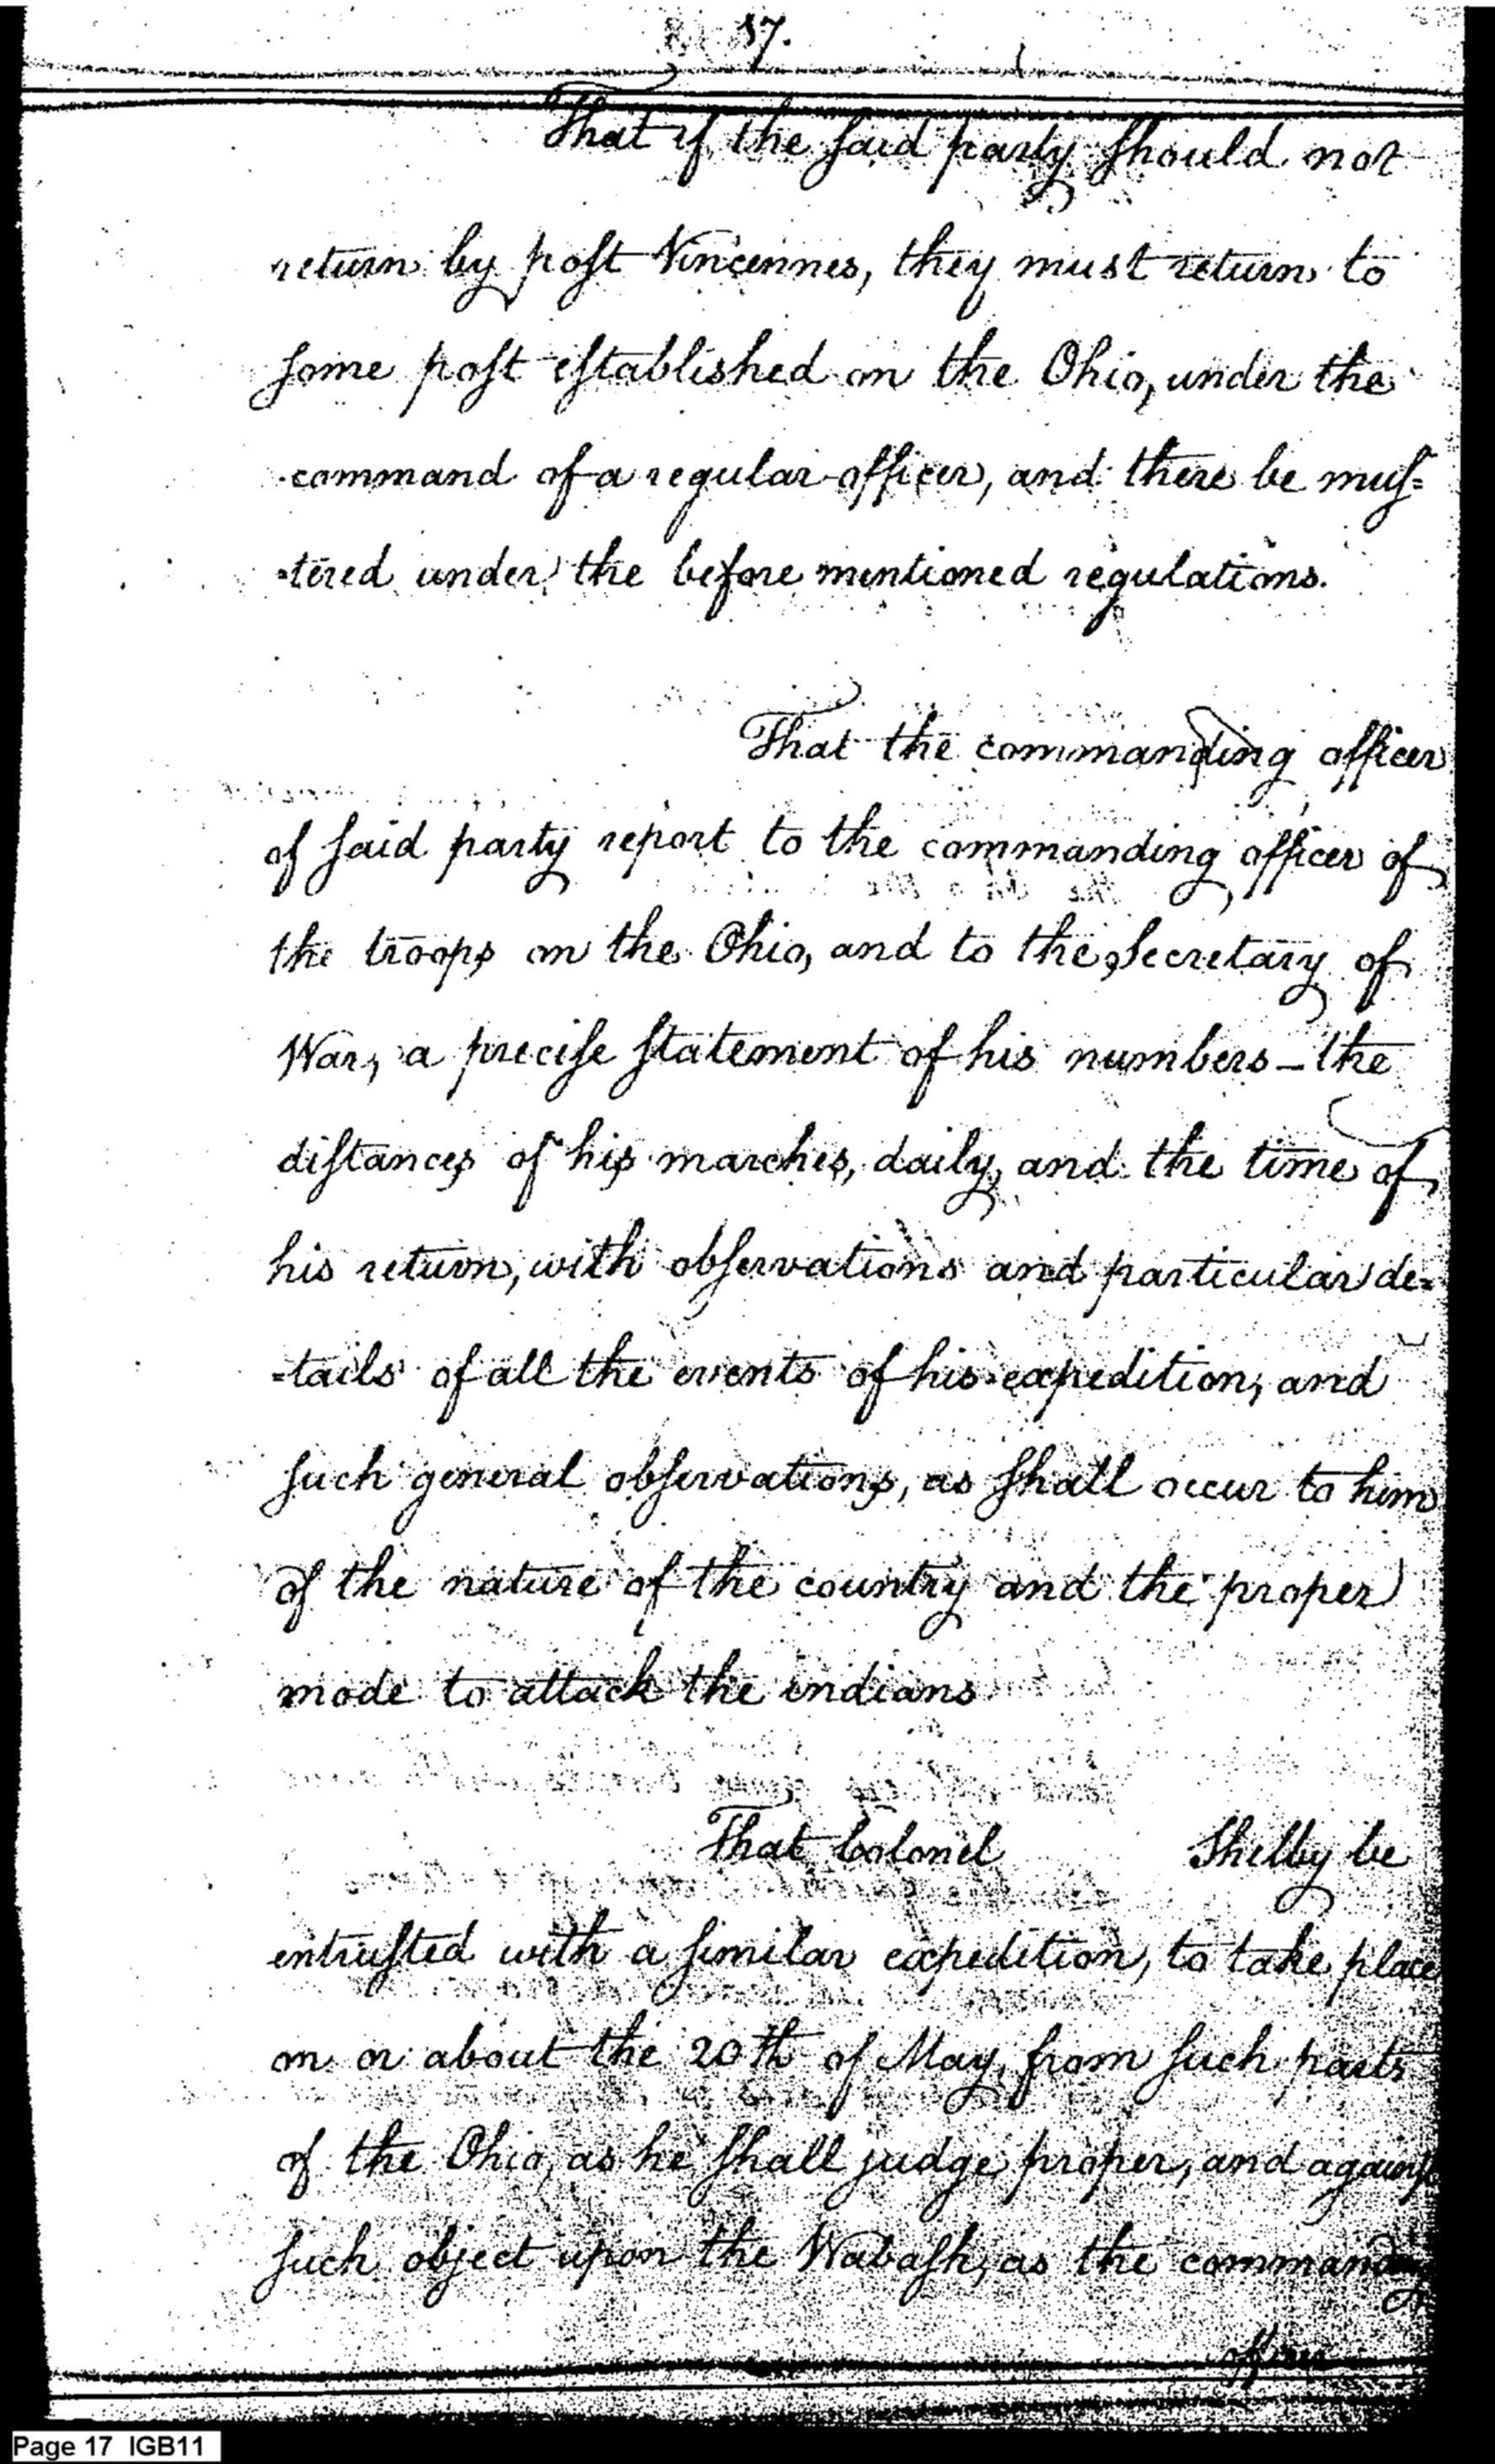 17.
That if the said party should not
return by post Vincennes, they must return to
some post established on the Ohio, under the
command of a regular officer, and there be mus=
=tered under the before mentioned regulations.
That the commanding officer
of said party report to the commanding officer of
the troops on the Ohio, and to the Secretary of
War, a precise statement of his numbers – the
distances of his marches, daily, and the time of
his return, with observations and particular de=
=tails of all the events of his expedition, and
such general observations, as shall occur to him
of the nature of the country and the proper
mode to attack the indians
That Colonel Shelby be
entrusted with a similar expedition, to take place
on or about the 20th of May, from such parts
of the Ohio, as he shall judge proper, and against
such object upon the Wabash, as the commanding
officer
Page 17 IGB11